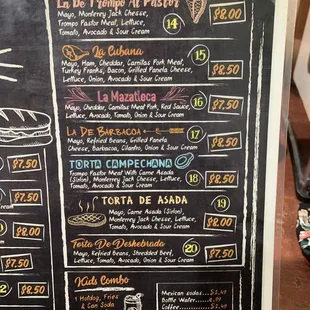 En De Trompo Al Pastor
Mayo, Monterey Jack Cheese,
Trompo Pastor Meat, Lettuce,
Tomato, Avocado & Sour Cream
14
$8.00
La Cubana
15
Mayo, Ham, Cheddar, Camilas Pork Meat,
Turkey Franks, Bacon, Grilled Panela Cheese,
Lettuce, Onion, Avocado & Sour Cream
$8.50
La Mazatleca
16
$7.50
Mayo, Cheddar, Camilas Pork Meat, Red Sauce,
Lettuce, Avocado, Tomato, Onion & Sour Cream
La De Barbacoa
17
Mayo, Refried Beans, Grilled Panela
Cheese, Barbacoa, Cilantro, Onion & Sour Cream
$8.50
TORTA CAMPECHANA
Trompo Pastor Meat With Carne Asada
(Sirloin), Monterey Jack Cheese, Lettuce,
Tomato, Avocado & Sour Cream
18
$8.50
TORTA DE ASADA
19
Mayo, Carne Asada (Sirloin),
Monterey Jack Cheese, Lettuce,
Tomato, Avocado & Sour Cream
$8.00
Torta De Deshebrada
20
Mayo, Refried Beans, Shredded Beef,
Lettuce, Tomato, Avocado, Onion & Sour Cream
$7.50
Kids Combo
1 Hotdog, Fries
& Can Soda
Mexican sodas
Bottle Water
Coffee
$7.50
$7.50
$8.00
$8.50